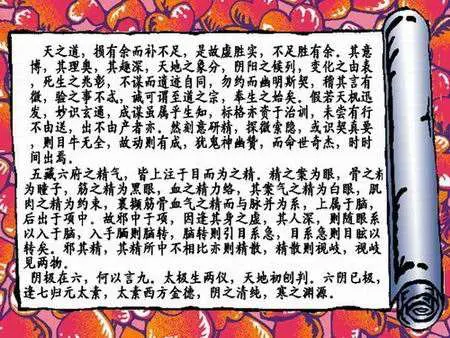 天之道，损有余而补不足，是故虚胜实，不足胜有余。其意
博，其理奥，其趣深，天地之象分，阴阳之候列，变化之由表
，死生之兆彰，不谋而遗迹自同，勿约而幽明斯契，稽其言有
微，验之事不忒，诚可谓至道之宗，奉生之始矣。假若天机迅
发，妙识玄通，成谋虽属乎生知，标格亦资于治训，未尝有行
不由送，出不由产者亦。然刻意研精，探微索隐，或识契真要
，则目牛无全，故动则有成，犹鬼神幽赞，而命世奇杰，时时
间出焉。
五藏六府之精气，皆上注于目而为之精。精之案为眼，骨之精
为瞳子，筋之精为黑眼，血之精力络，其案气之精为白眼，肌
肉之精为约束，裹撷筋骨血气之精而与脉并为系，上属于脑，
后出于项中。故邪中于项，因逢其身之虚，其人深，则随眼系
以入于脑，入手脑则脑转，脑转则引目系急，目系急则目眩以
转矣。邪其精，其精所中不相比亦则精散，精散则视歧，视歧
见两物。
阴极在六，何以言九。太极生两仪，天地初创判。六阴已极，
逢七归元太素，太素西方金德，阴之清纯，寒之渊源。